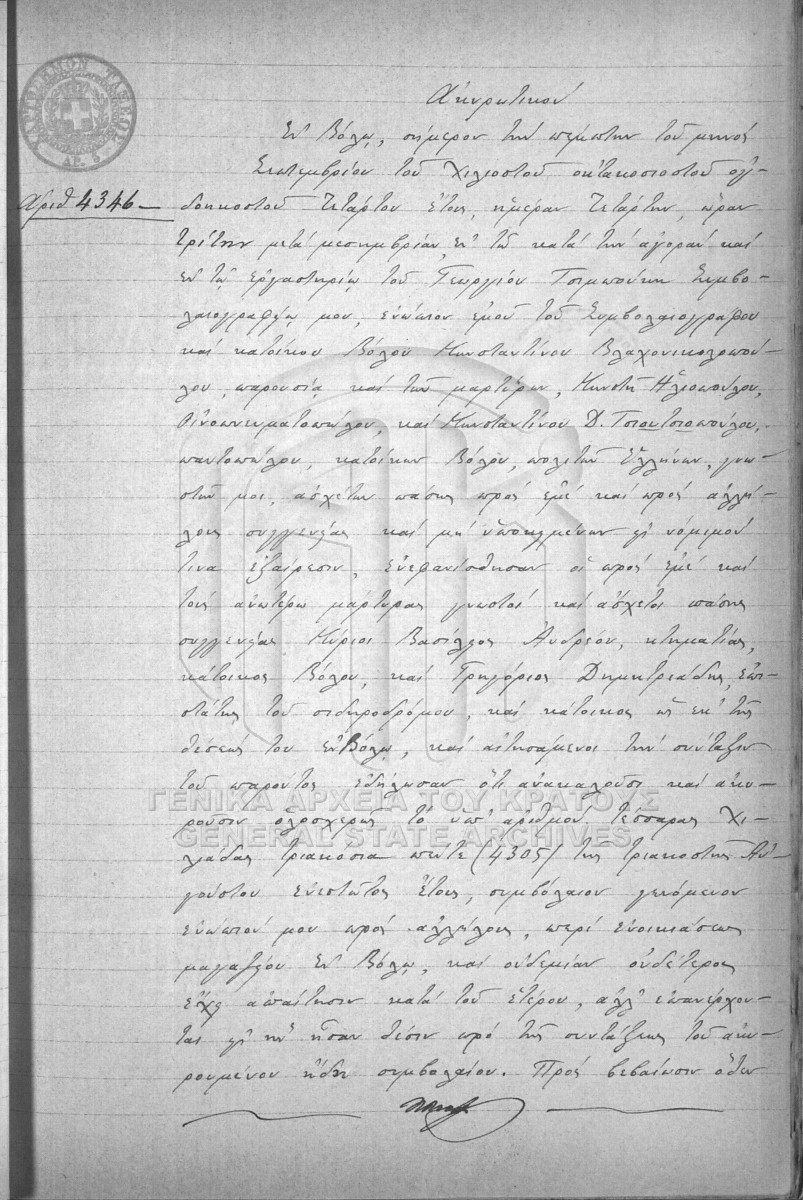 ΧΑΡΤΟΣΗΜΟΝ ΤΑΞΕΩΣ
ΑΡ. 5
Ἀκυρωτικόν
Ἐν Βόλῳ, σήμερον τὴν πέμπτην τοῦ μηνὸς
Σεπτεμβρίου τοῦ χιλιοστοῦ ὀκτακοσιοστοῦ ὀγ-
Ἀριθ 4346 – δοηκοστοῦ τετάρτου ἔτους, ἡμέραν Τετάρτην, ὥραν
τρίτην μετὰ μεσημβρίαν, ἐν τῷ κατὰ τὴν ἀγορὰν καὶ
ἐν τῷ ἐργαστηρίῳ τοῦ Γεωργίου Τσιμπούκη Συμβο-
λαιογραφείῳ μου, ἐνώπιον ἐμοῦ τοῦ Συμβολαιογράφου
καὶ κατοίκου Βόλου Κωνσταντίνου Βλαχονικολοπού-
λου, παρουσίᾳ καὶ τῶν μαρτύρων, Κωστῆ Ἡλιοπούλου,
Οἰνοπνευματοπώλου, καὶ Κωνσταντίνου Δ. Τσιουτσιοπούλου,
παντοπώλου, κατοίκων Βόλου, πολιτῶν Ἑλλήνων, γνω-
στῶν μοι, ἀσχέτων πάσης πρὸς ἐμὲ καὶ πρὸς ἀλλή-
λους συγγενείας καὶ μὴ ὑποκειμένων εἰς νόμιμόν
τινα ἐξαίρεσιν, ἐνεφανίσθησαν οἱ πρὸς ἐμὲ καὶ
τοὺς ἀνωτέρω μάρτυρας γνωστοὶ καὶ ἄσχετοι πάσης
συγγενείας Κύριοι Βασίλειος Ἀνδρέου, κτηματίας,
κάτοικος Βόλου, καὶ Γρηγόριος Δημητριάδης, ἐπι-
στάτης τοῦ σιδηροδρόμου, καὶ κάτοικος ὡς ἐκ τῆς
θέσεώς του ἐν Βόλῳ, καὶ αἰτησάμενοι τὴν σύνταξιν
τοῦ παρόντος ἐδήλωσαν ὅτι ἀνακαλοῦσι καὶ ἀκυ-
ροῦσιν ὁλοσχερῶς τὸ ὑπ' ἀριθμὸν τέσσαρας χι-
λιάδας τριακόσια πέντε (4305) τῆς τριακοστῆς Αὐ-
γούστου ἐνεστῶτος ἔτους, συμβόλαιον γενόμενον
ἐνώπιόν μου πρὸς ἀλλήλους, περὶ ἐνοικιάσεως
μαγαζείου ἐν Βόλῳ, καὶ οὐδεμίαν οὐδέτερος
ἔχει ἀπαίτησιν κατὰ τοῦ ἑτέρου, ἀλλ' ἐπανέρχον-
ται εἰς ἣν ἦσαν θέσιν πρὸ τῆς συντάξεως τοῦ ἀκυ-
ρουμένου ἤδη συμβολαίου. Πρὸς βεβαίωσιν ὅθεν
ΓΕΝΙΚΑ ΑΡΧΕΙΑ ΤΟΥ ΚΡΑΤΟΥΣ
GENERAL STATE ARCHIVES